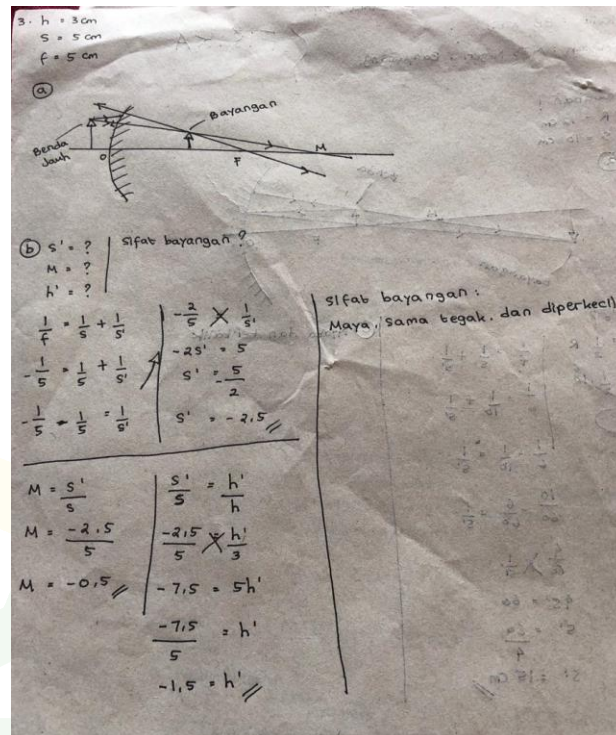 3. h = 3 cm
s = 5 cm
f = 5 cm
a
Bayangan
Benda
Jauh
O
F
M
b s' = ? sifat bayangan ?
M = ?
h' = ?
1/f = 1/s + 1/s'
-1/5 = 1/5 + 1/s'
-1/5 - 1/5 = 1/s'
-2/5 1/s'
-2s' = 5
s' = -5/2
s' = -2,5
sifat bayangan :
Maya, sama tegak, dan diperkecil
M = s'/s
M = -2,5/5
M = -0,5
s'/5 = h'/h
-2,5/5 = h'/3
-7,5 = 5h'
-7,5/5 = h'
-1,5 = h'